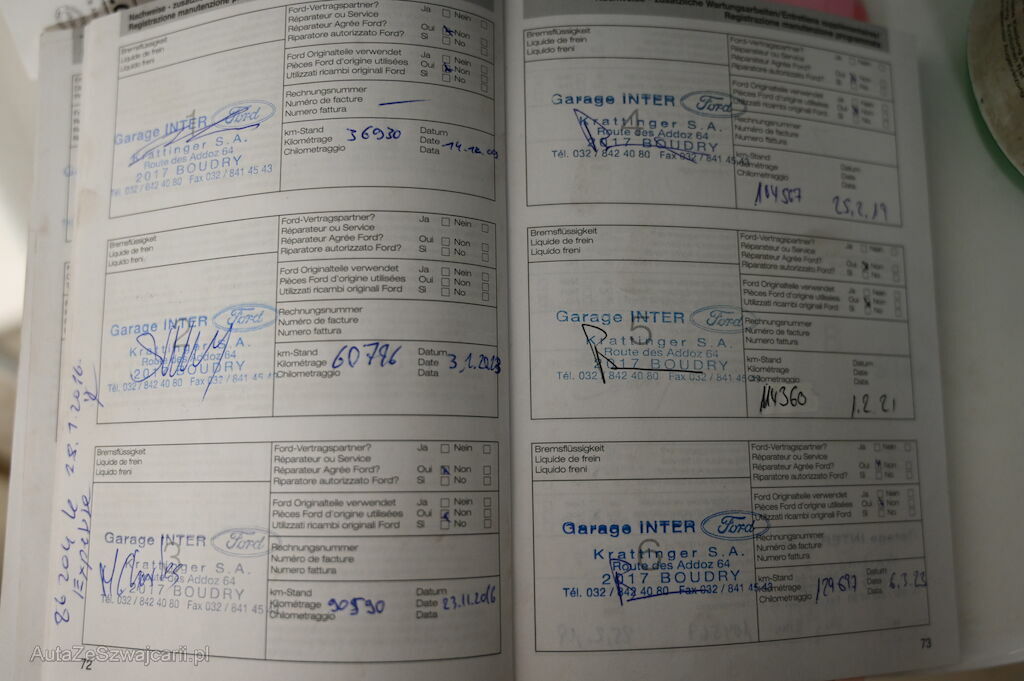 Registrazione manutenzione
Bremsflüssigkeit
Liquide de frein
Liquido freni
Ford-Vertragspartner? Ja Nein
Réparateur ou Service
Réparateur Agrée Ford? Oui Non
Riparatore autorizzato Ford? Si No
Ford Originalteile verwendet Ja Nein
Pièces Ford d'origine utilisées Oui Non
Utilizzati ricambi originali Ford Si No
Rechnungsnummer
Numéro de facture
Numero fattura
1
Garage INTER Ford
Krattinger S.A.
Route des Addoz 64
2017 BOUDRY
Tél. 032 / 842 40 80 Fax 032 / 841 45 43
km-Stand Datum
Kilométrage 36930 Date
Chilometraggio Data
Bremsflüssigkeit
Liquide de frein
Liquido freni
Ford-Vertragspartner? Ja Nein
Réparateur ou Service
Réparateur Agrée Ford? Oui Non
Riparatore autorizzato Ford? Si No
Ford Originalteile verwendet Ja Nein
Pièces Ford d'origine utilisées Oui Non
Utilizzati ricambi originali Ford Si No
Rechnungsnummer
Numéro de facture
Numero fattura
Garage INTER Ford
Krattinger S.A.
Route des Addoz 64
2017 BOUDRY
Tél. 032 / 842 40 80 Fax 032 / 841 45
km-Stand Datum
Kilométrage 60796 Date 3.1.2013
Chilometraggio Data
Bremsflüssigkeit
Liquide de frein
Liquido freni
Ford-Vertragspartner? Ja Nein
Réparateur ou Service
Réparateur Agrée Ford? Oui Non
Riparatore autorizzato Ford? Si No
Ford Originalteile verwendet Ja Nein
Pièces Ford d'origine utilisées Oui Non
Utilizzati ricambi originali Ford Si No
Rechnungsnummer
Numéro de facture
Numero fattura
3
Garage INTER Ford
Krattinger S.A.
Route des Addoz 64
2017 BOUDRY
Tél. 032 / 842 40 80 Fax 032 / 841 45
km-Stand Datum
Kilométrage 90590 Date 23.11.2016
Chilometraggio Data
28.1.2016
72
Nachweise - zusätzliche Wartungsarbeiten/Entretiens
Registrazione manutenzione programmata
Bremsflüssigkeit
Liquide de frein
Liquido freni
Ford-Vertragspartner? Ja Nein
Réparateur ou Service
Réparateur Agrée Ford? Oui Non
Riparatore autorizzato Ford? Si No
Ford Originalteile verwendet Ja Nein
Pièces Ford d'origine utilisées Oui Non
Utilizzati ricambi originali Ford Si No
Rechnungsnummer
Numéro de facture
Numero fattura
4
Garage INTER Ford
Krattinger S.A.
Route des Addoz 64
2017 BOUDRY
Tél. 032 / 842 40 80 Fax 032 / 841 45 43
km-Stand Datum
Kilométrage Date
Chilometraggio Data
25.2.19
Bremsflüssigkeit
Liquide de frein
Liquido freni
Ford-Vertragspartner? Ja Nein
Réparateur ou Service
Réparateur Agrée Ford? Oui Non
Riparatore autorizzato Ford? Si No
Ford Originalteile verwendet Ja Nein
Pièces Ford d'origine utilisées Oui Non
Utilizzati ricambi originali Ford Si No
Rechnungsnummer
Numéro de facture
Numero fattura
5
Garage INTER Ford
Krattinger S.A.
Route des Addoz 64
2017 BOUDRY
Tél. 032 / 842 40 80 Fax 032 / 841 45
km-Stand Datum
Kilométrage Date
Chilometraggio Data
114360 1.2.21
Bremsflüssigkeit
Liquide de frein
Liquido freni
Ford-Vertragspartner? Ja Nein
Réparateur ou Service
Réparateur Agrée Ford? Oui Non
Riparatore autorizzato Ford? Si No
Ford Originalteile verwendet Ja Nein
Pièces Ford d'origine utilisées Oui Non
Utilizzati ricambi originali Ford Si No
Rechnungsnummer
Numéro de facture
Numero fattura
6
Garage INTER Ford
Krattinger S.A.
Route des Addoz 64
2017 BOUDRY
Tél. 032 / 842 40 80 Fax 032 / 841 45 43
km-Stand Datum
Kilométrage Date
Chilometraggio Data
73
AutaZeSzwajcarii.pl